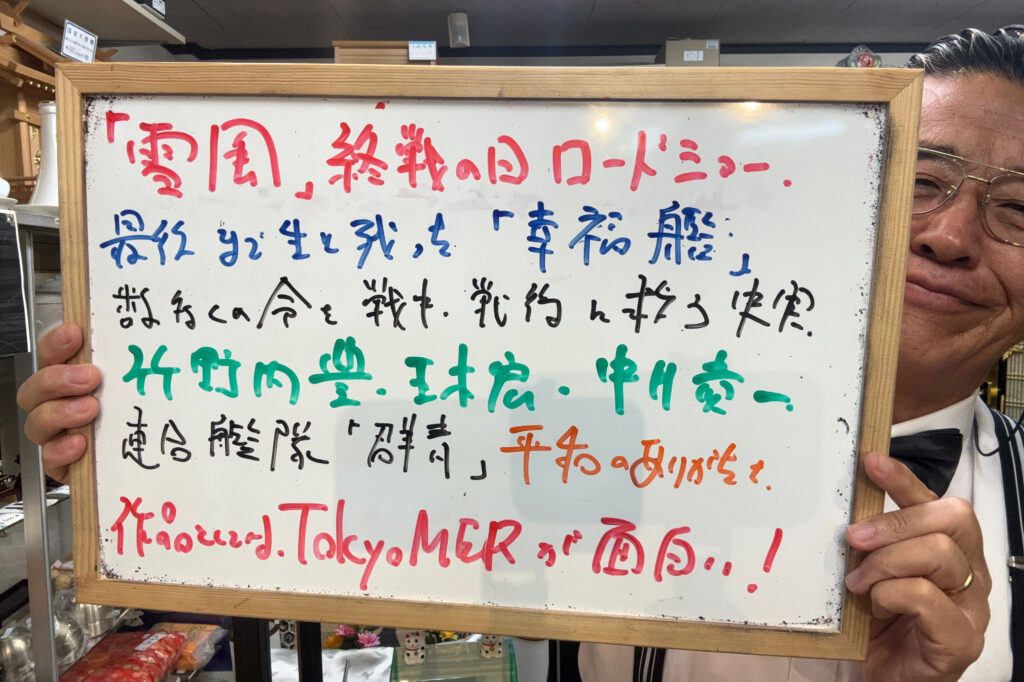 「雪風」終戦の日ロードショー.
最後まで生き残った「幸福艦」
数多くの命を戦中.戦後に救う史実.
竹野内豊.玉木宏.中井貴一.
連合艦隊「群青」平和のありがたさ.
作品としては.TokyoMERが面白い!